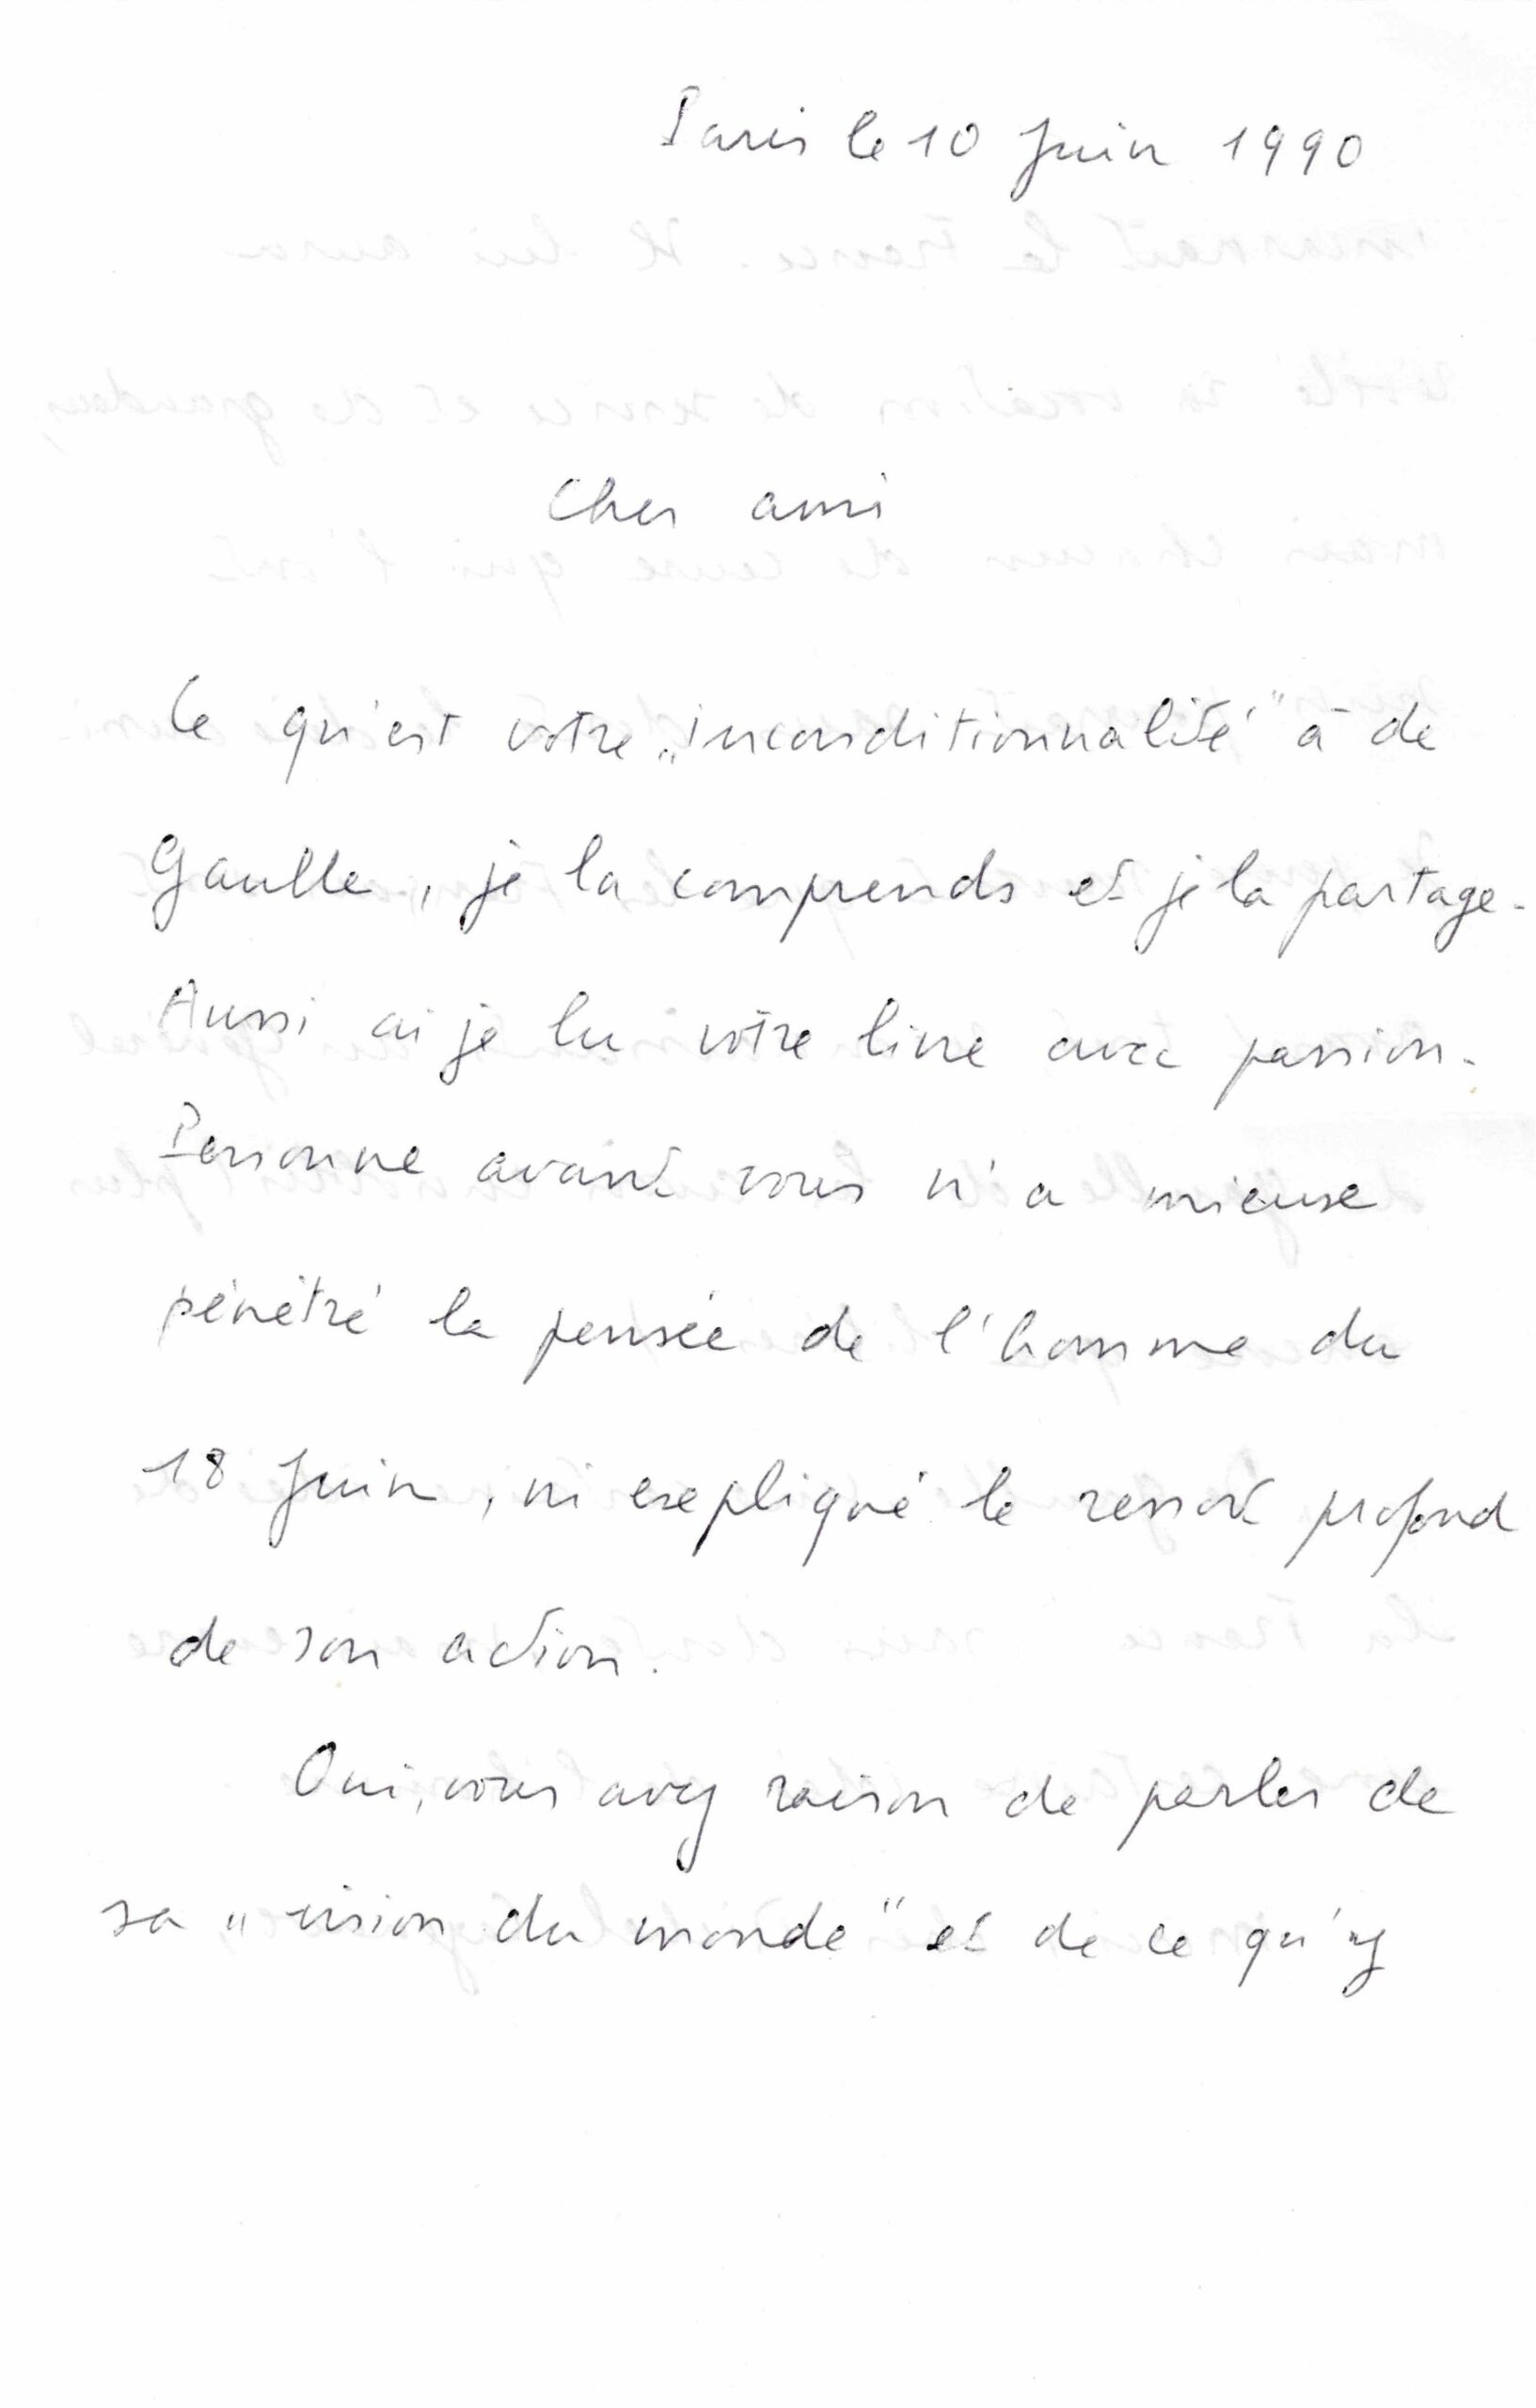 Paris le 10 Juin 1990
Cher ami
Ce qu'est votre „inconditionnalité" à de
Gaulle, je la comprends et je la partage.
Aussi ai je lu votre livre avec passion.
Personne avant vous n'a mieux
pénétré la pensée de l'homme du
18 Juin, ni expliqué le ressort profond
de son action.
Oui, vous avez raison de parler de
sa „vision du monde" et de ce qu'y